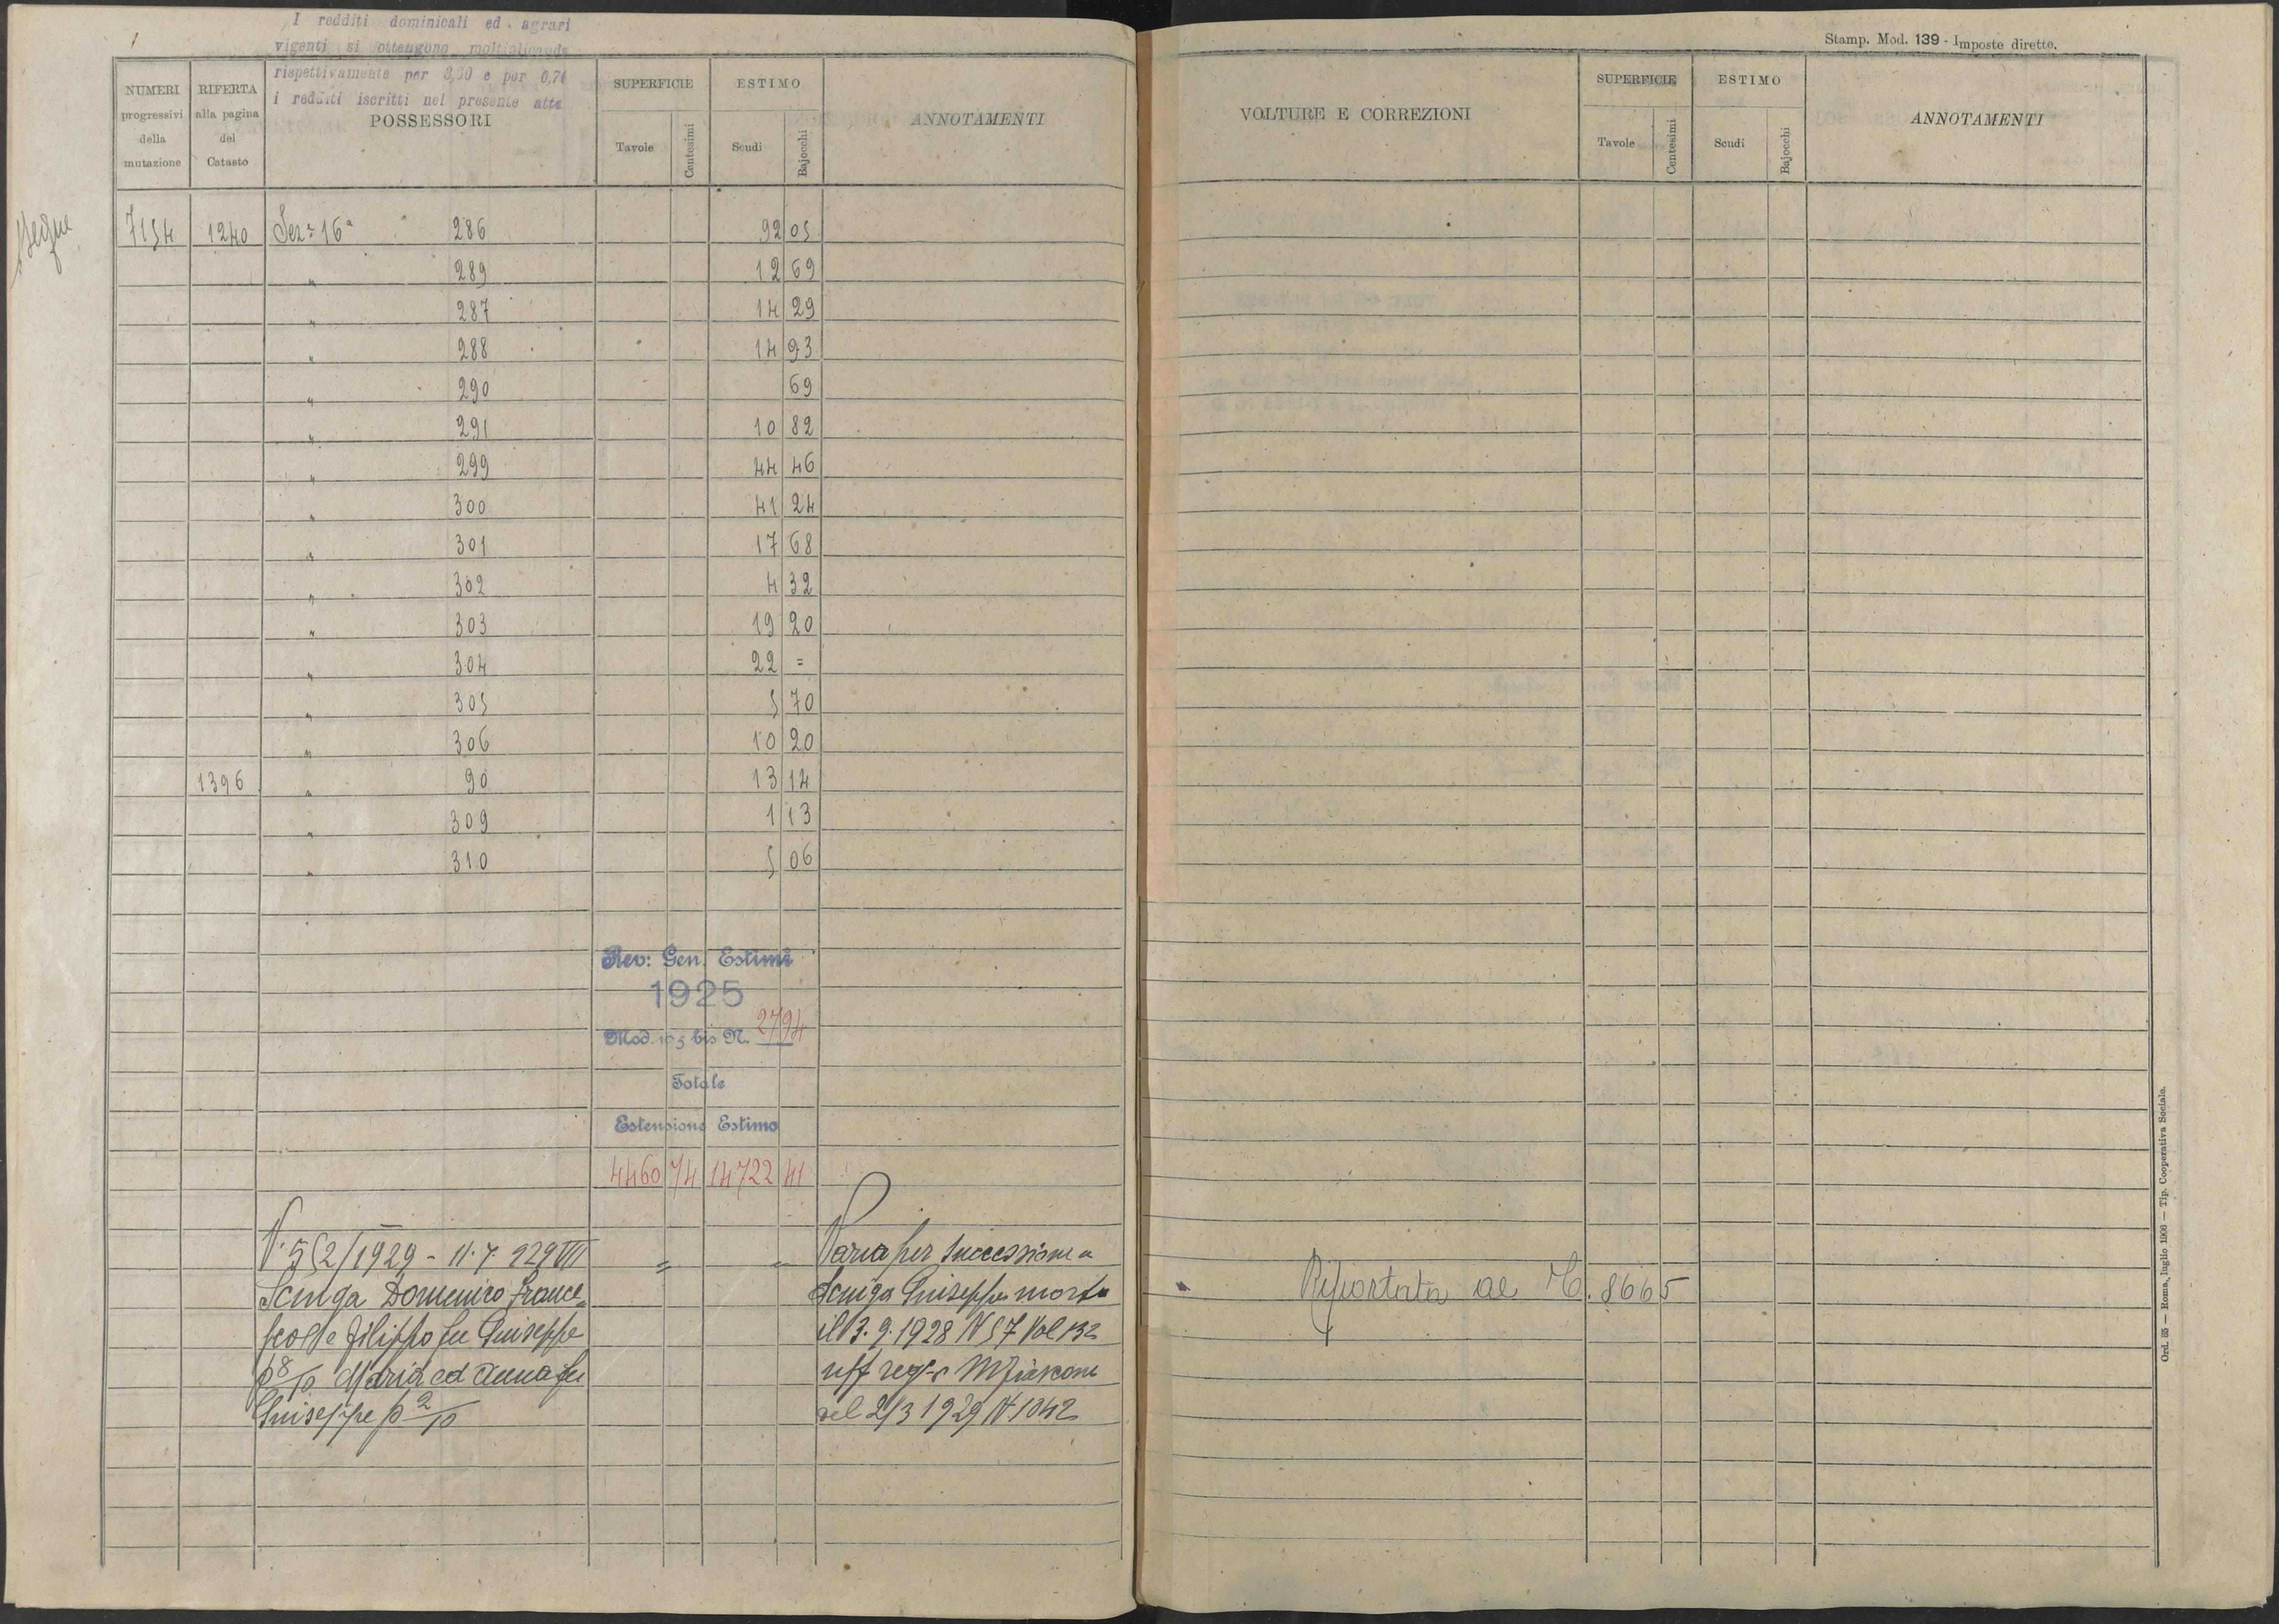 1
I redditi dominicali ed agrari
vigenti si ottengono moltiplicando
rispettivamente per 3,50 e per 0,74
i redditi iscritti nel presente atto
NUMERI progressivi della mutazione
RIFERTA alla pagina del Catasto
POSSESSORI
SUPERFICIE
Tavole
Centesimi
ESTIMO
Scudi
Bajocchi
ANNOTAMENTI
segue
7154 1240 Sez: 16ª 286 92 05
" 289 12 69
" 287 14 29
" 288 14 93
" 290 69
" 291 10 82
" 299 44 46
" 300 41 24
" 301 17 68
" 302 4 32
" 303 19 20
" 304 22 =
" 305 5 70
" 306 10 20
1396 " 90 13 14
" 309 1 13
" 310 5 06
Rev: Gen. Estimi
1925
Mod. 105 bis N. 2794
Totale
Estensione Estimo
4460 74 14722 41
V. 552/1929 - 11.7.929 VII = =
Scinga Domenico France=
sco e Filippo fu Giuseppe
p 8/10 Maria ed Anna fu
Giuseppe p 2/10
Varia per successione a
Scinga Giuseppe morto
il 13.9.1928 N 57 Vol 132
uff reg
del 2/3 1929 N. 1042
Stamp. Mod. 139 - Imposte dirette.
VOLTURE E CORREZIONI
SUPERFICIE
Tavole
Centesimi
ESTIMO
Scudi
Bajocchi
ANNOTAMENTI
Riportata al 8665
Ord. 35 — Roma, luglio 1926 — Tip. Cooperativa Sociale.